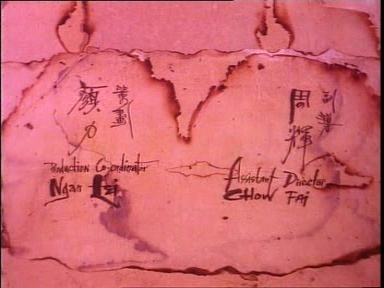 顏力
策劃
Production Co-ordinator
Ngan Lei
周輝
副導
Assistant Director
CHOW FAI